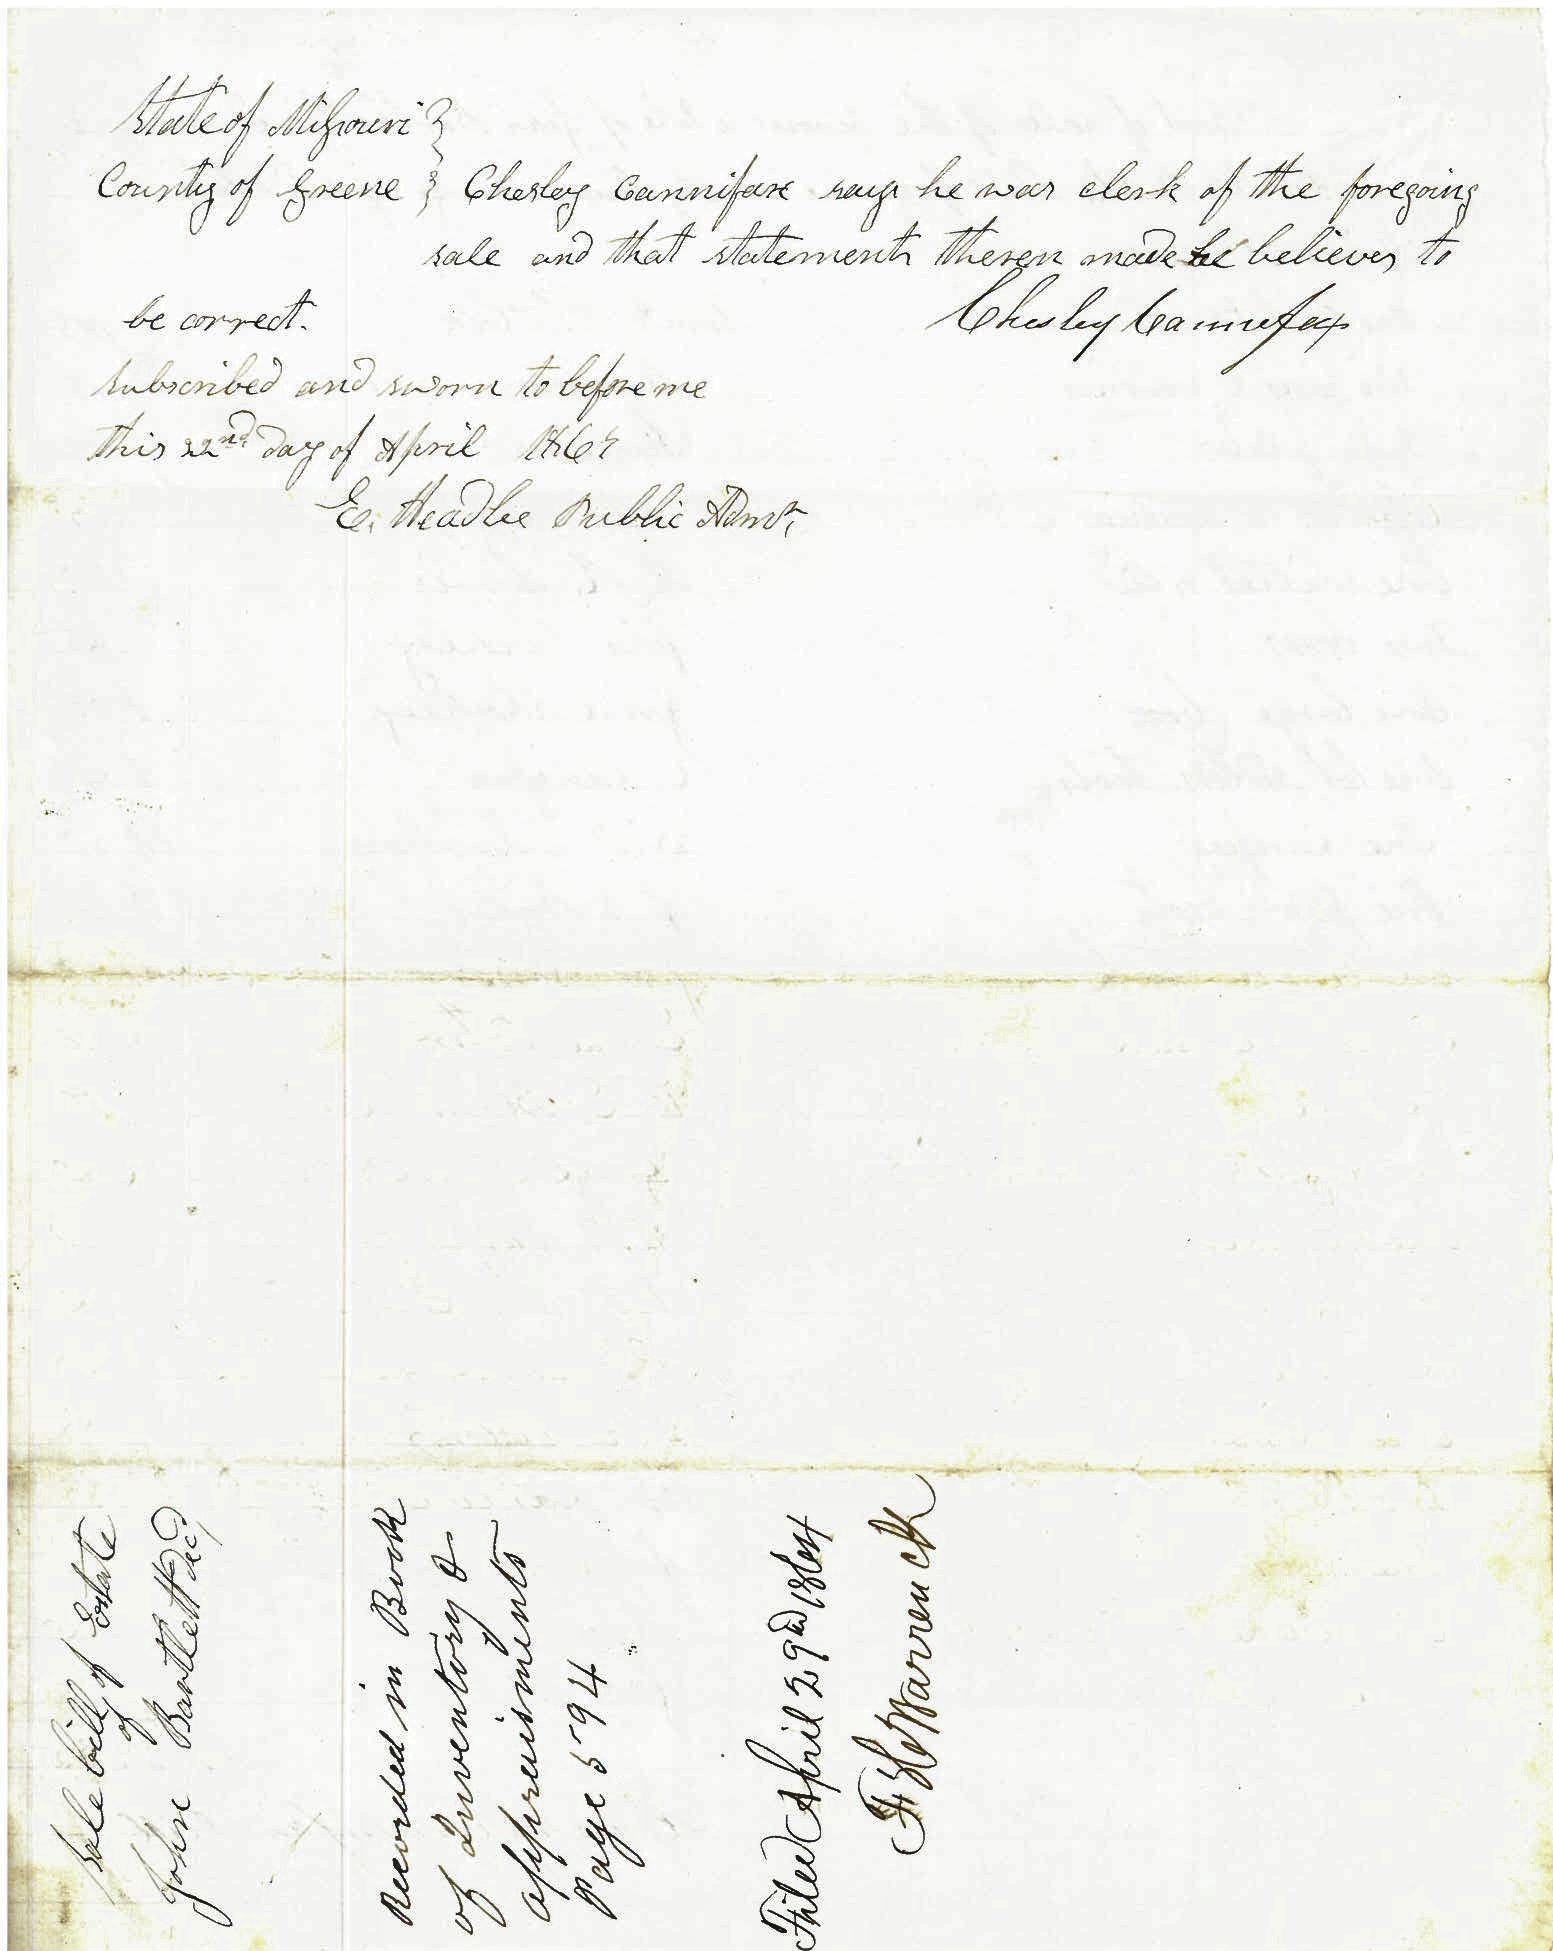 State of Missouri }
County of Greene } Chesley Cannifax says he was clerk of the foregoing
sale and that statements thereon made he believes to
be correct.
Chesley Cannefax
subscribed and sworn to before me
this 22nd day of April 1864
E. Headlee Public Admr.
Sale bill of Estate
of
John Bartlett Decd
Recorded in Book
of Inventory &
appraisments
Page 594
Filed April 29th 1864
Warren Clk